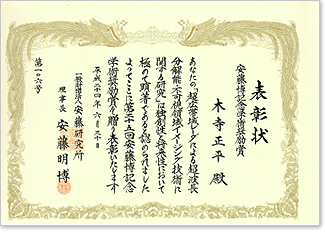 表彰状
安藤博記念学術奨励賞
木寺正平 殿
あなたの「超広帯域レーダによる超波長
分解能・不可視領域イメージング技術に
関する研究」は独創性と発展性において
極めて顕著であると認められました
よってここに第二十五回安藤博記念
学術奨励賞を贈り表彰いたします
平成二十四年 六月三十日
一般財団法人 安藤研究所
理事長 安藤明博
第一〇六号